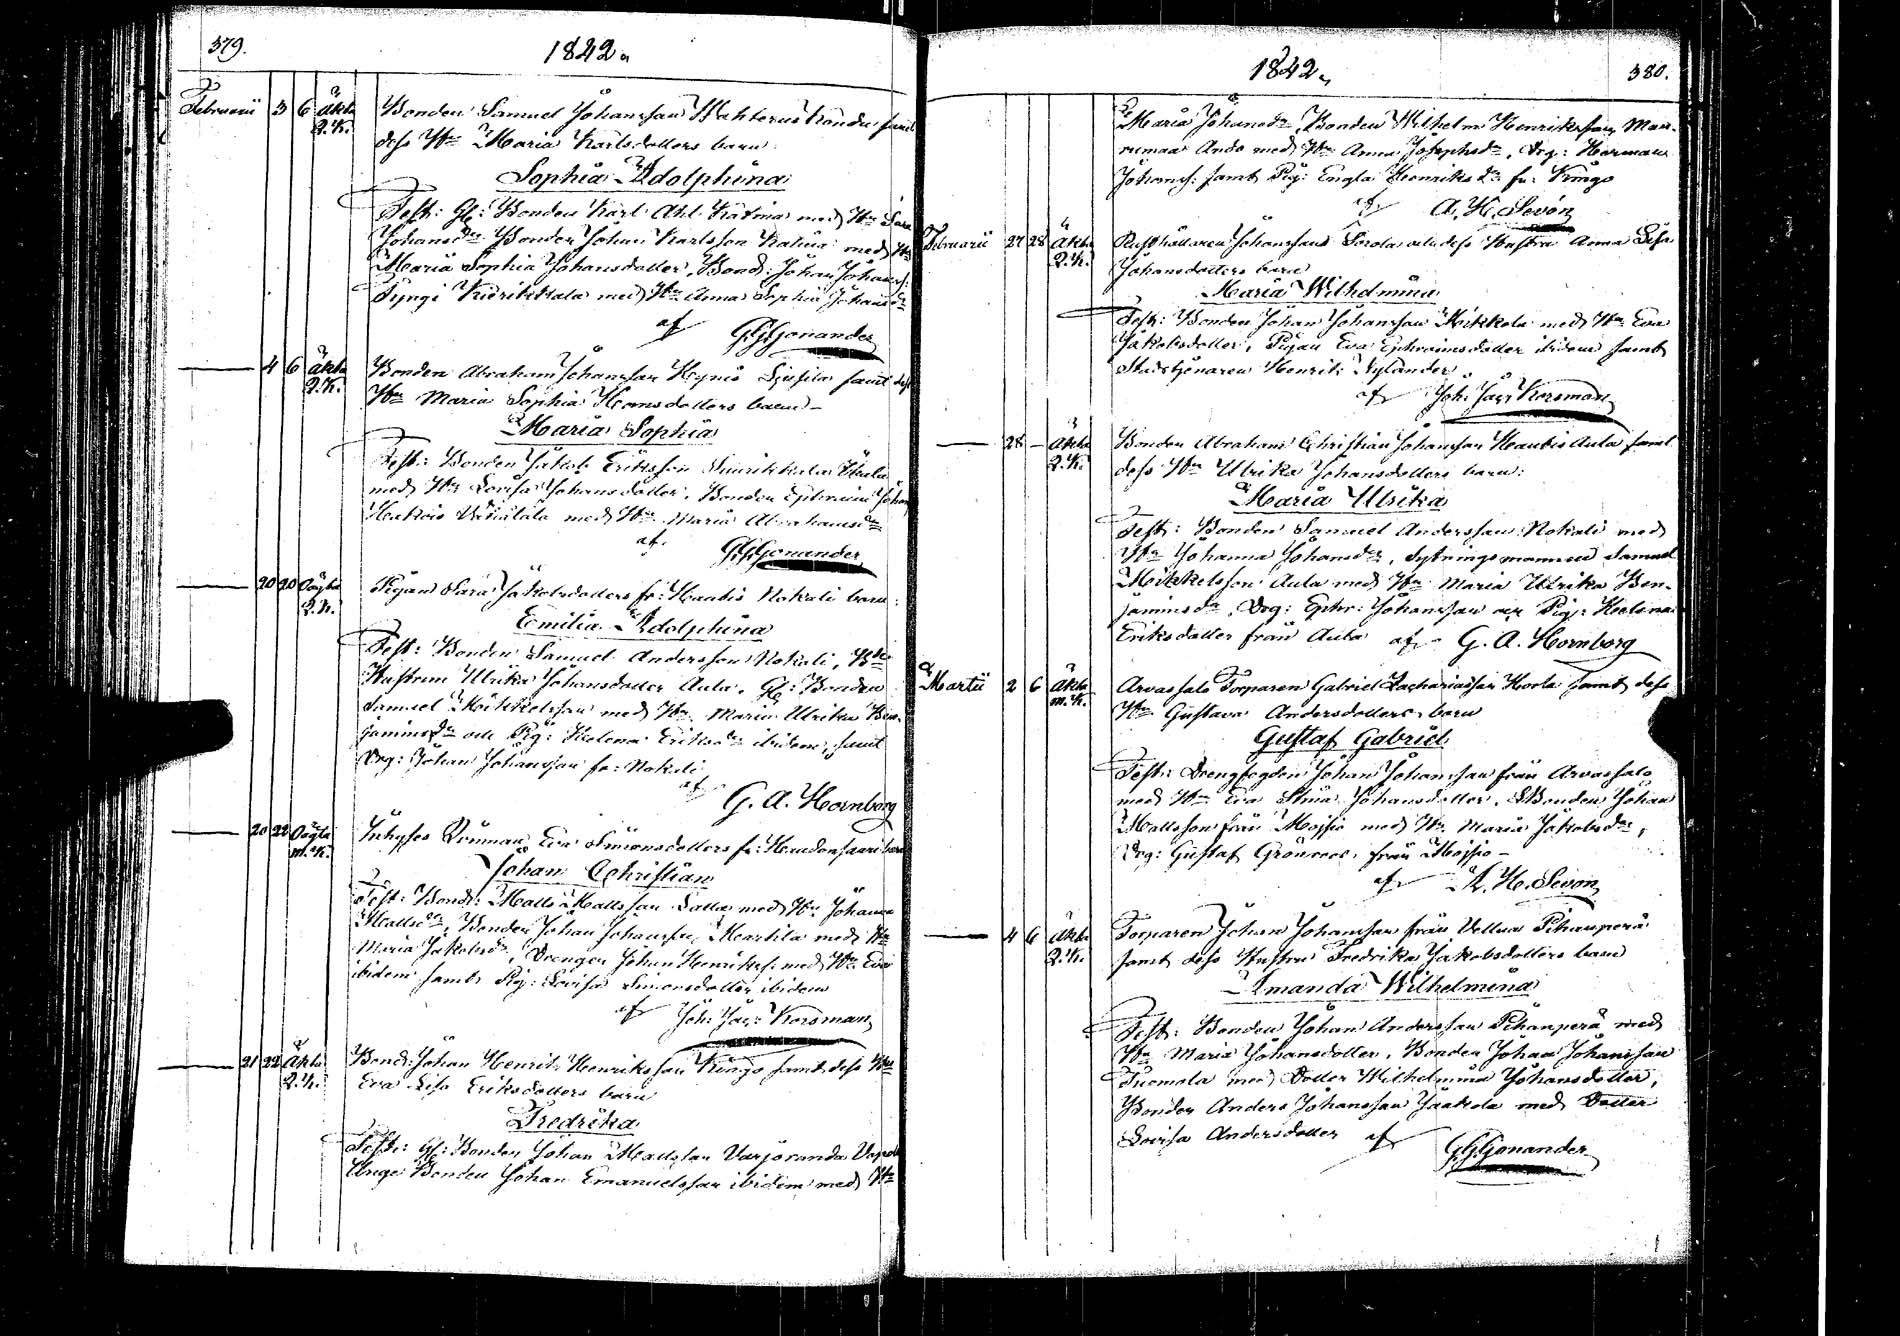 379.
1842.
Februarii 3 6 Äkta Bonden Samuel Johansson
Q.K. dess Hu Maria Karlsdotters barn
Sophia Adolphina
Test: Gl: Bonden Karl med Hu Sara
Johansdr Bonden Johan Karlsson med Hu
Maria Sophia Johansdotter, Bond: Johan Johans:
med Hu Anna Sophia Johansdr
af G.G. Gonander
4 6 Äkta Bonden Abraham Johansson samt dess
Q.K. Hu Maria Sophia Hansdotters barn
Maria Sophia
Test: Bonden Jakob Eriksson
med Hu Lovisa Johansdotter, Bonden Ephraim Johan
med Hu Maria Abrahamsdr
af G.G. Gonander
20 20 Oägta Pigan Sara Jakobsdotters fr: Hautis Nokali barn:
Q.K.
Emilia Adolphina
Test: Bonden Samuel Andersson Nokali,
Hustrun Ulrika Johansdotter Aula, Gl: Bonden
Samuel Mikkelsson med Hu Maria Ulrika Ben-
jaminsdr och Pig: Helena Eriksdr ibidem, samt
Drg: Johan Johansson fr: Nokali
af G. A. Hornborg
20 22 Oägta Inhyses Qvinnan Eva Simonsdotters fr: barn
M.K.
Johan Christian
Test: Bond: Matts Mattsson med Hu Johanna
Mattsdr, Bonden Johan Johansson Marttila med Hu
Maria Jakobsdr, Drengen Johan Henrikss: med Hu Eva
ibidem samt Pig: Lovisa Simonsdotter ibidem
af Joh: Jac: Korsman
21 22 Äkta Bond: Johan Henrik Henriksson Kingo samt dess Hu
Q.K. Eva Lisa Eriksdotters barn
Fredrika
Test: Gl: Bonden Johan Mattsson Varjoranda
Unge Bonden Johan Emanuelsson ibidem med Hu
1842.
380.
Maria Johansdr, Bonden Wilhelm Henriksson
med Hu Anna Josephsdr, Drg: Herman
Johanss: samt Pig: Engla Henriksdr fr: Kingo
af A. H. Sevón
Februarii 27 28 Äkta Rusthållaren Johanssons Sorola och dess Hustru Anna Lisa
Q.K. Johansdotters barn
Maria Wilhelmina
Test: Bonden Johan Johansson Mikkola med Hu Eva
Jakobsdotter, Pigan Eva Ephraimsdotter ibidem samt
Stadstjenaren Henrik Nylander
af Joh: Jac: Korsman
28 – Äkta Bonden Abraham Christian Johansson Hautis Aula samt
Q.K. dess Hu Ulrika Johansdotters barn:
Maria Ulrika
Test: Bonden Samuel Andersson Nokali med
Hu Johanna Johansdr, Sytningsmannen Samuel
Mikkelsson Aula med Hu Maria Ulrika Ben-
jaminsdr, Drg: Ephr: Johansson och Pig: Helena
Eriksdotter från Aula af G. A. Hornborg
Martii 2 6 Äkta Arvassalo Torparen Gabriel Zachariasson Horla samt dess
M.K. Hu Gustava Andersdotters barn
Gustaf Gabriel
Test: Drengfogden Johan Johansson från Arvassalo
med Hu Eva Stina Johansdotter, Bonden Johan
Mattsson från Moisio med Hu Maria Jakobsdr,
Drg: Gustaf Grönroos, från Moisio –
af A. H. Sevon
4 6 Äkta Torparen Johan Johansson från Vellua Pihanperä
Q.K. samt dess Hustru Fredrika Jakobsdotters barn
Amanda Wilhelmina
Test: Bonden Johan Andersson Pihanperä med
Hu Maria Johansdotter, Bonden Johan Johansson
Tuomola med Dotter Wilhelmina Johansdotter,
Bonden Anders Johansson Jaakola med Dotter
Lovisa Andersdotter af G.G. Gonander